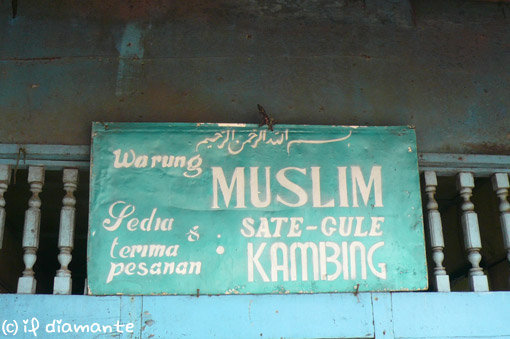 بسم الله الرحمن الرحيم
Warung
MUSLIM
Sedia & :
terima
pesanan
SATE-GULE
KAMBING
(c) il diamante